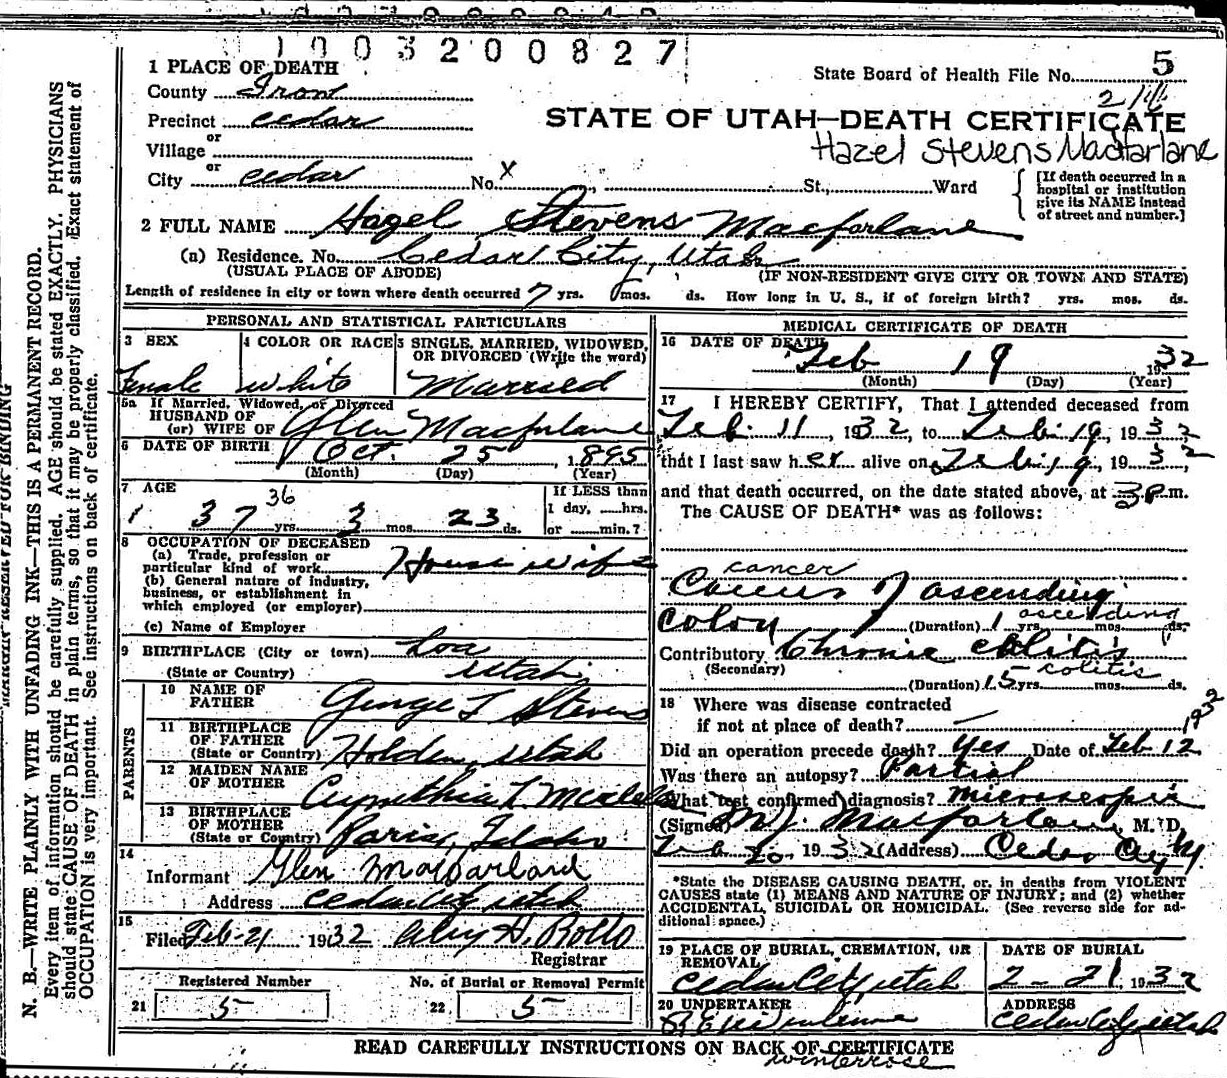 1003200827
5
1 PLACE OF DEATH
State Board of Health File No.
County Iron
2/16
Precinct Cedar
STATE OF UTAH—DEATH CERTIFICATE
or
Village
Hazel Stevens Macfarlane
or
City Cedar No. X St., Ward
[If death occurred in a
hospital or institution
give its NAME instead
of street and number.]
2 FULL NAME Hazel Stevens Macfarlane
(a) Residence. No. Cedar City, Utah
(USUAL PLACE OF ABODE) (IF NON-RESIDENT GIVE CITY OR TOWN AND STATE)
Length of residence in city or town where death occurred 7 yrs. mos. ds. How long in U. S., if of foreign birth? yrs. mos. ds.
PERSONAL AND STATISTICAL PARTICULARS
3 SEX
Female
4 COLOR OR RACE
White
5 SINGLE, MARRIED, WIDOWED,
OR DIVORCED (Write the word)
Married
5a If Married, Widowed, or Divorced
HUSBAND OF
(or) WIFE OF Glen Macfarlane
6 DATE OF BIRTH Oct. 25, 1895
(Month) (Day) (Year)
7 AGE
36
37 yrs. 3 mos. 23 ds.
If LESS than
1 day, hrs.
or min.?
8 OCCUPATION OF DECEASED
(a) Trade, profession or
particular kind of work Housewife
(b) General nature of industry,
business, or establishment in
which employed (or employer)
(c) Name of Employer
9 BIRTHPLACE (City or town) Loa
(State or Country) Utah
PARENTS
10 NAME OF
FATHER George T Stevens
11 BIRTHPLACE
OF FATHER
(State or Country) Holden, Utah
12 MAIDEN NAME
OF MOTHER Cynthia L
13 BIRTHPLACE
OF MOTHER
(State or Country) Paris, Idaho
14
Informant Glen Macfarland
Address Cedar City Utah
15
Filed Feb-21 1932 H. Rollo
Registrar
Registered Number
21 5
No. of Burial or Removal Permit
22 5
MEDICAL CERTIFICATE OF DEATH
16 DATE OF DEATH
Feb 19 1932
(Month) (Day) (Year)
17 I HEREBY CERTIFY, That I attended deceased from
Feb. 11, 1932, to Feb. 19, 1932
that I last saw her alive on Feb. 19, 1932
and that death occurred, on the date stated above, at 3 P.m.
The CAUSE OF DEATH* was as follows:
cancer
Cancer of ascending
ascending
Colon (Duration) 1 yrs. mos. ds.
Contributory Chronic colitis
(Secondary) colitis
(Duration) 15 yrs. mos. ds.
18 Where was disease contracted
if not at place of death? —
1932
Did an operation precede death? Yes Date of Feb 12
Was there an autopsy? Partial
What test confirmed diagnosis? Microscopic
(Signed) M. J. Macfarlane, M. D.
Feb 20, 1932 (Address) Cedar City U.
*State the DISEASE CAUSING DEATH, or, in deaths from VIOLENT
CAUSES state (1) MEANS AND NATURE OF INJURY; and (2) whether
ACCIDENTAL, SUICIDAL OR HOMICIDAL. (See reverse side for ad-
ditional space.)
19 PLACE OF BURIAL, CREMATION, OR
REMOVAL
Cedar City Utah
DATE OF BURIAL
2-21 1932
20 UNDERTAKER
ADDRESS
Cedar City Utah
READ CAREFULLY INSTRUCTIONS ON BACK OF CERTIFICATE
winterrose
MARGIN RESERVED FOR BINDING
N. B.—WRITE PLAINLY WITH UNFADING INK—THIS IS A PERMANENT RECORD.
Every item of information should be carefully supplied. AGE should be stated EXACTLY. PHYSICIANS
should state CAUSE OF DEATH in plain terms, so that it may be properly classified. Exact statement of
OCCUPATION is very important. See instructions on back of certificate.